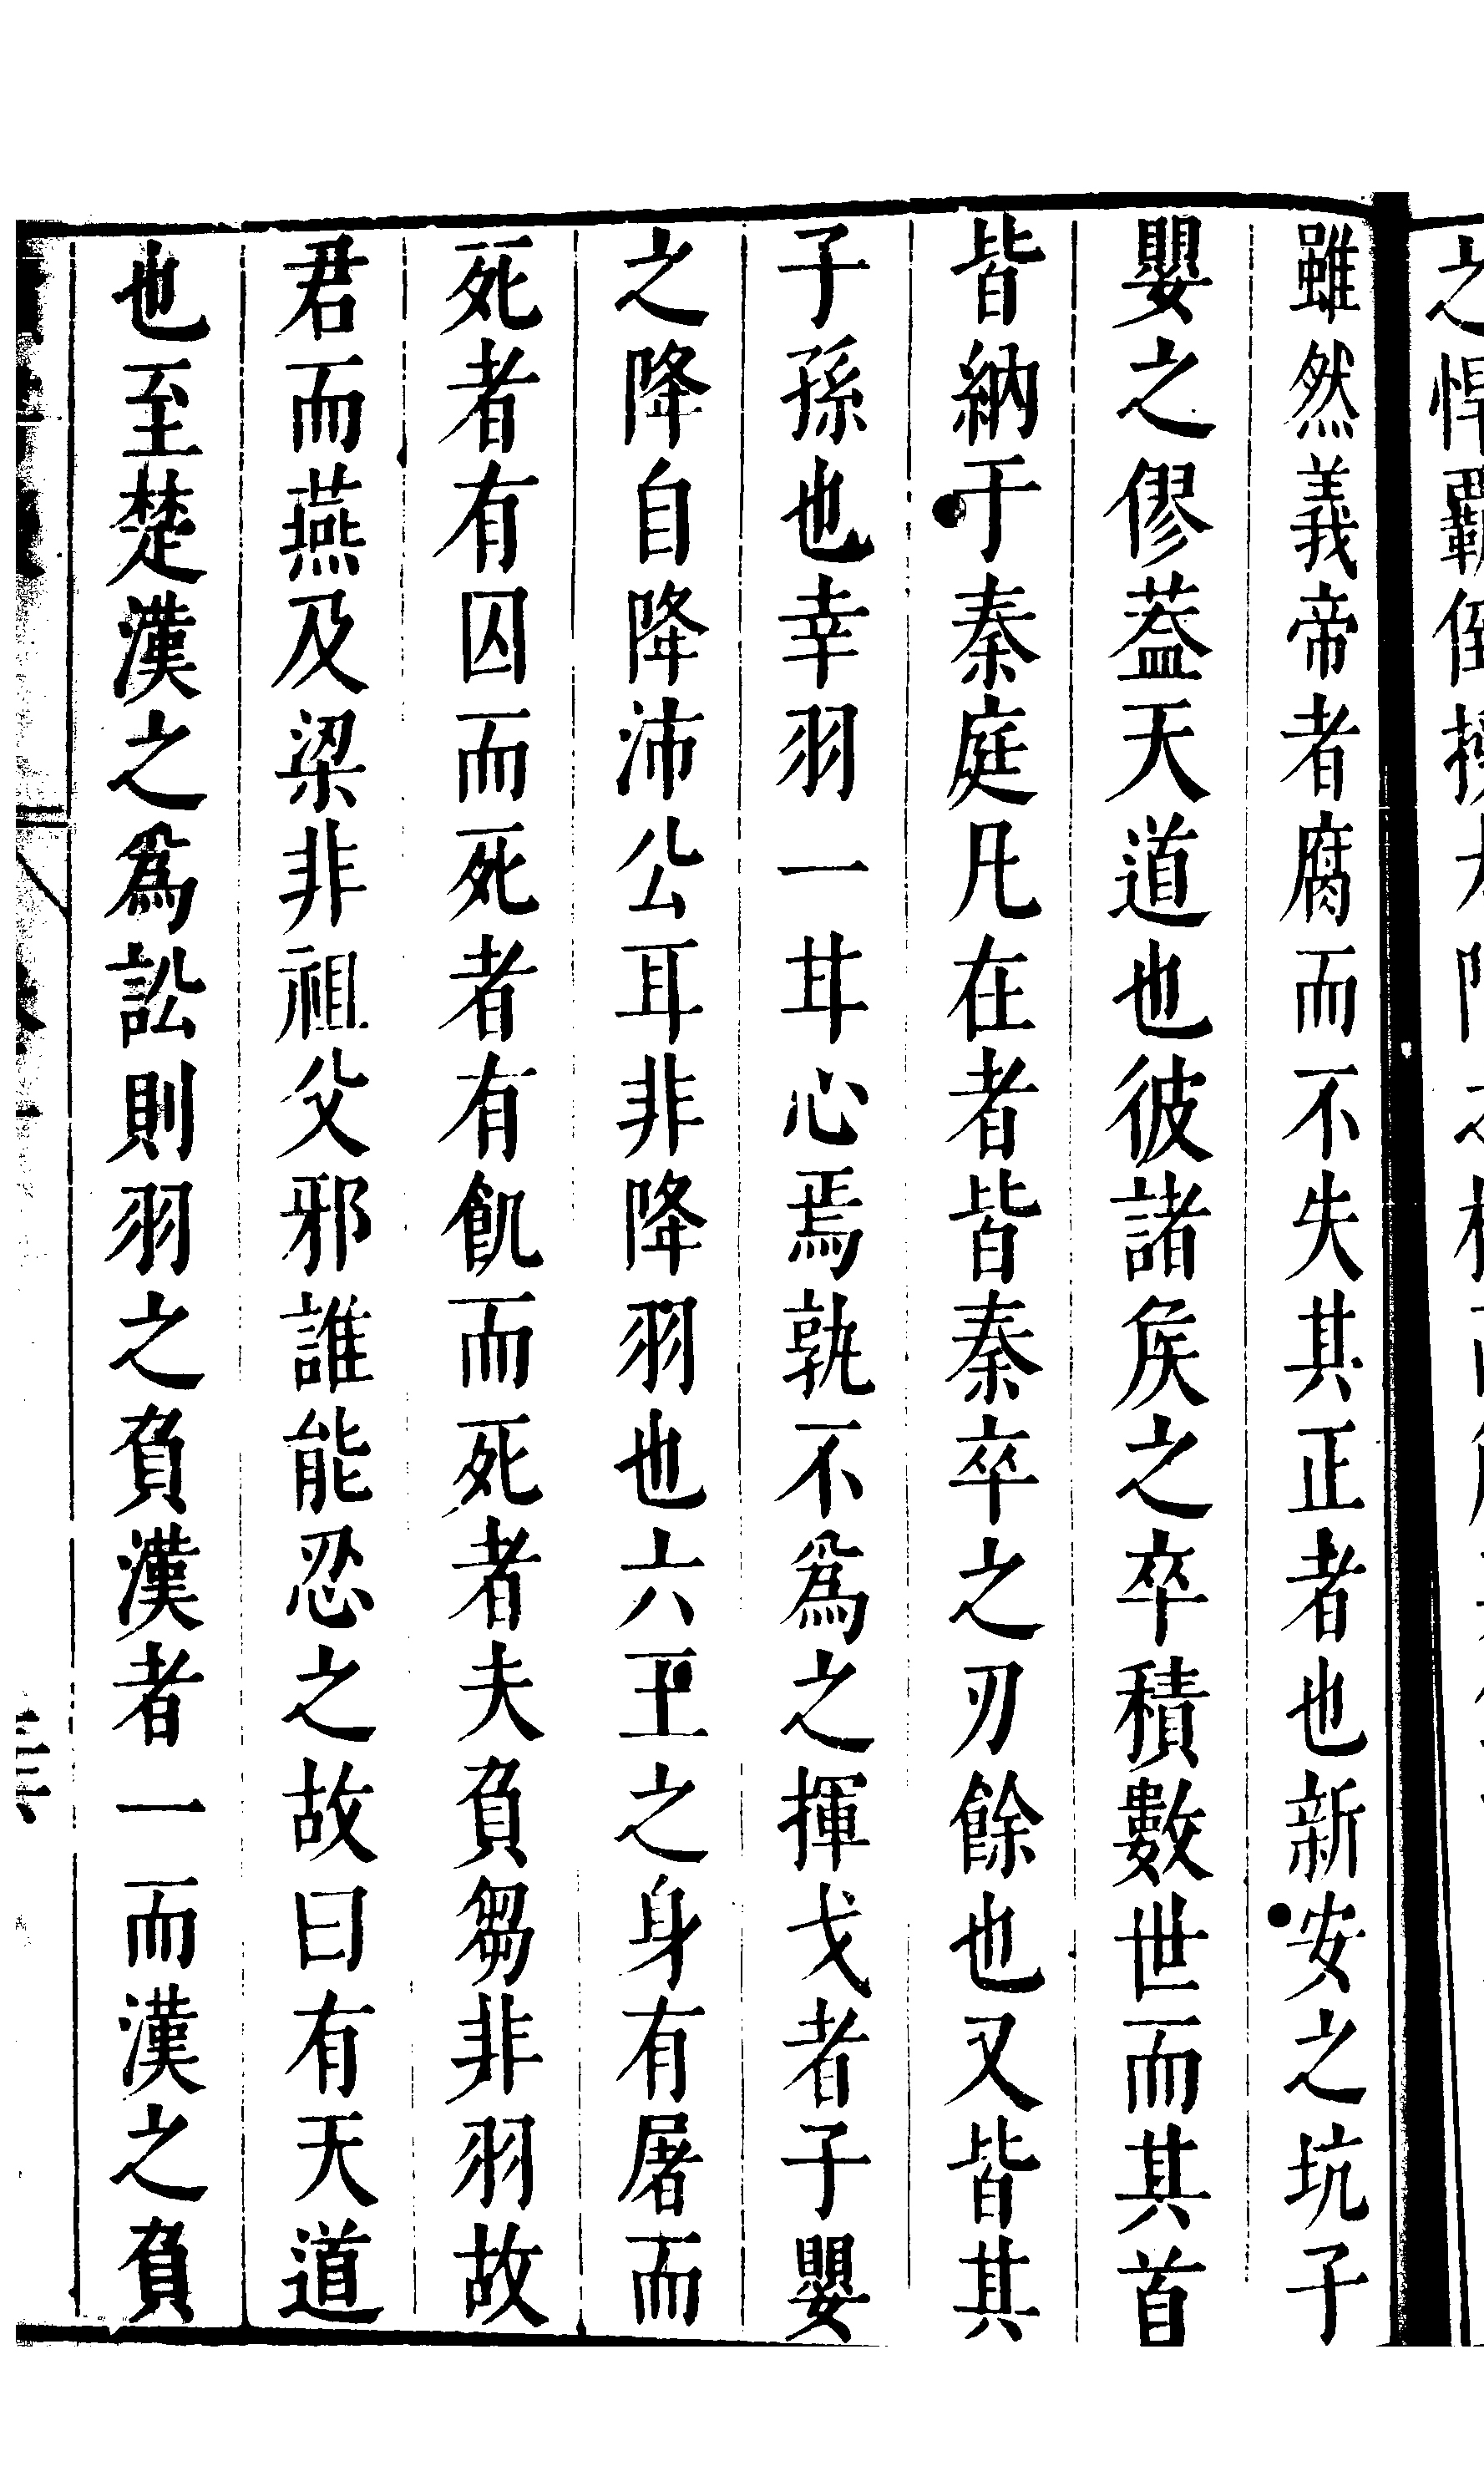 雖然義帝者腐而不失其正者也新安之坑子
嬰之僇葢天道也彼諸矦之卒積數世而其首
皆納于秦庭凡在者皆秦卒之刃餘也又皆其
子孫也幸羽一甘心焉孰不為之揮戈者子嬰
之降自降沛公耳非降羽也六王之身有屠而
死者有囚而死者有飢而死者夫負芻非羽故
君而燕及梁非祖父邪誰能忍之故曰有天道
也至楚漢之為訟則羽之負漢者一而漢之負